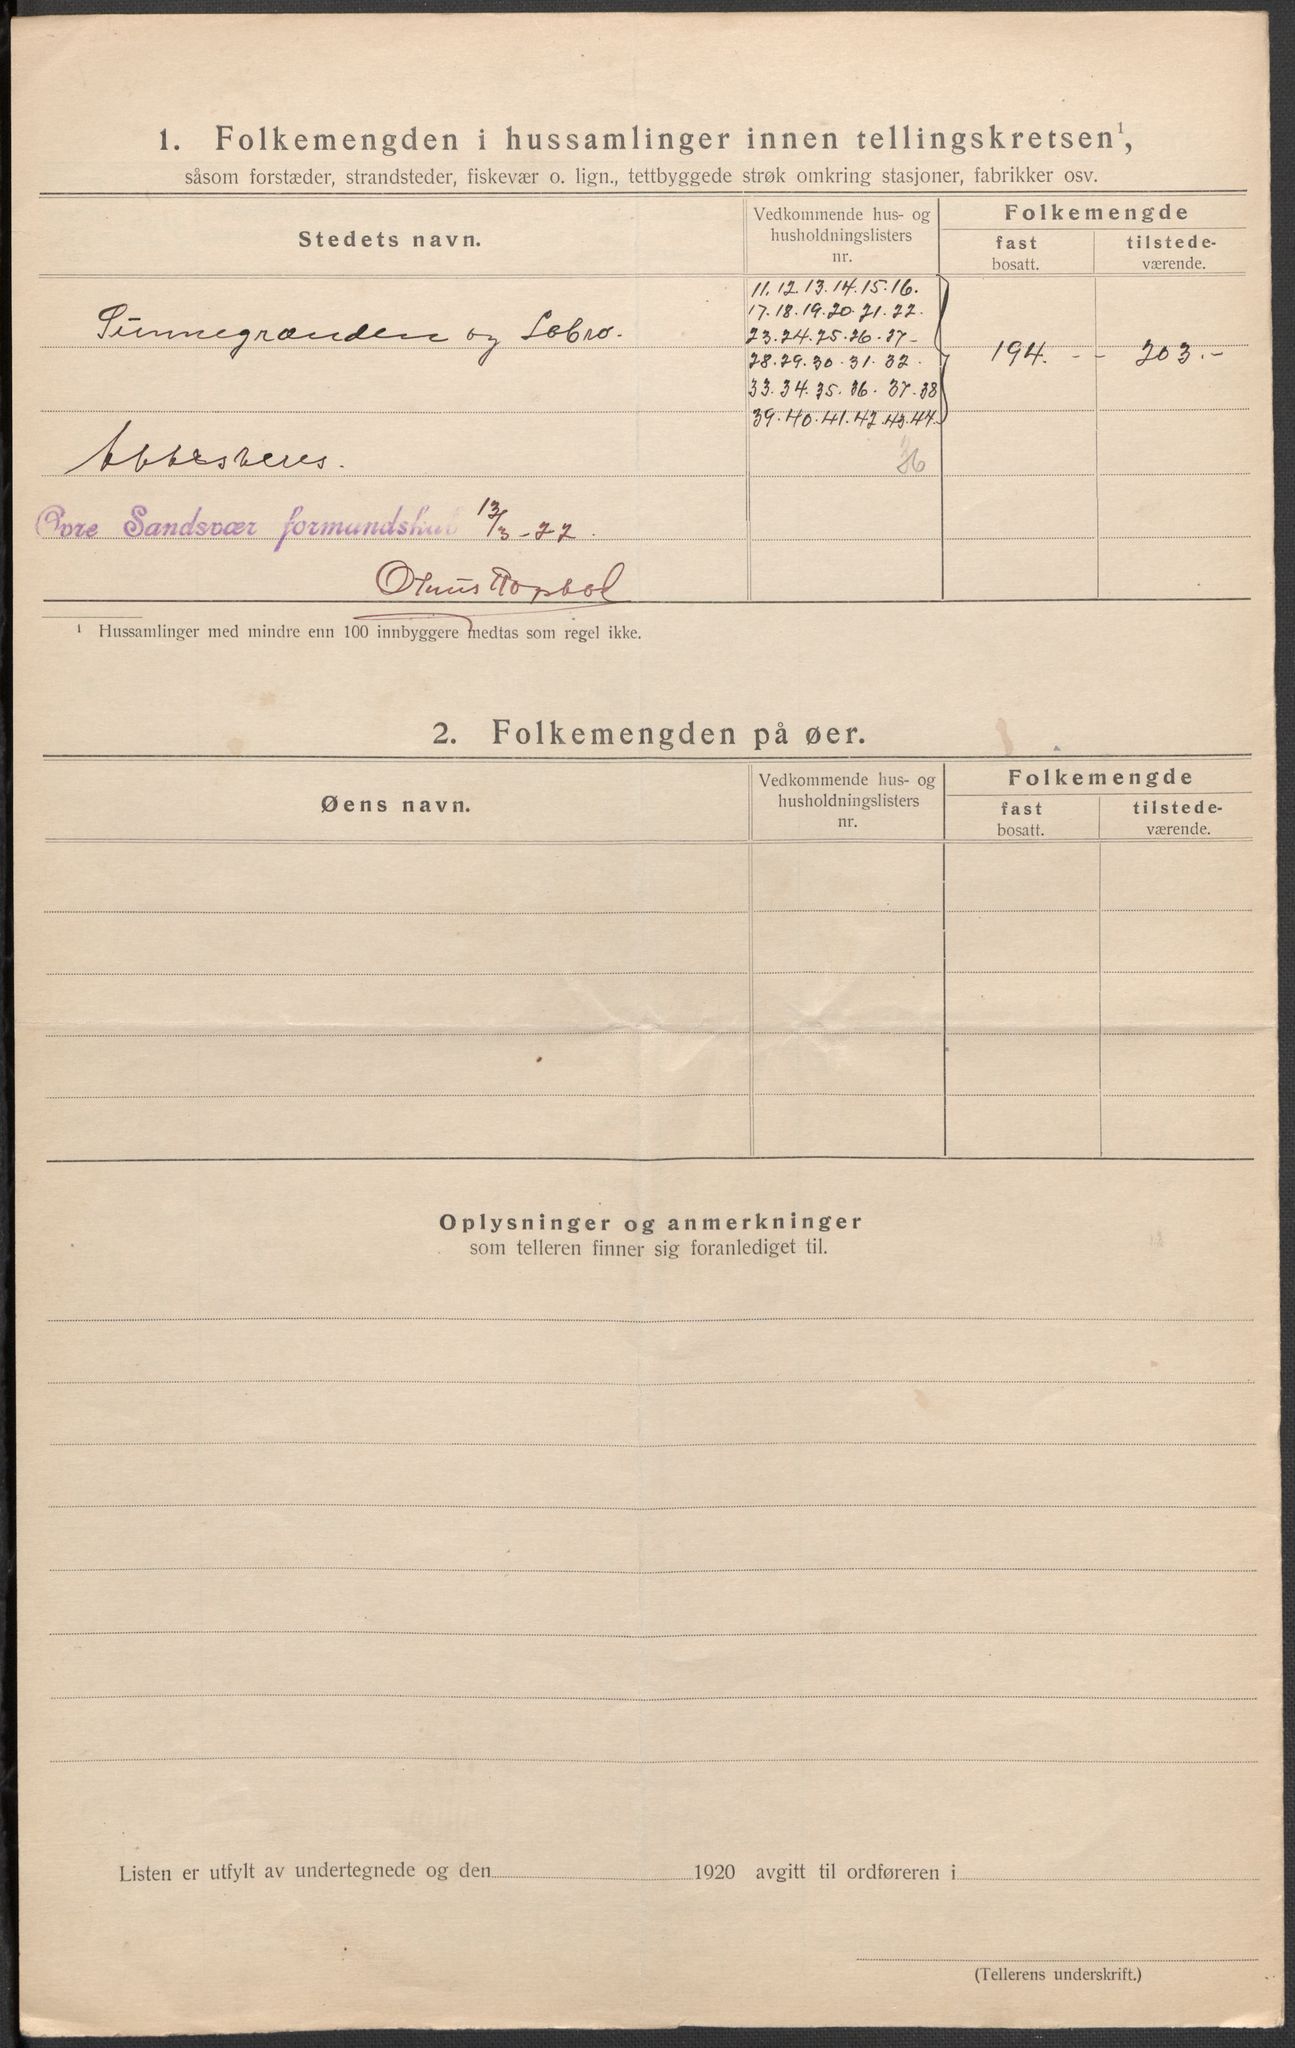 1. Folkemengden i hussamlinger innen tellingskretsen¹,
såsom forstæder, strandsteder, fiskevær o. lign., tettbyggede strøk omkring stasjoner, fabrikker osv.
Stedets navn.
Vedkommende hus- og husholdningslisters nr.
Folkemengde
fast bosatt.
tilstede-værende.
11. 12. 13. 14. 15. 16.
17. 18. 19. 20. 21. 22.
Sünnegrænden og Labro.
23. 24. 25. 26. 27
194. - - 203. -
28. 29. 30. 31. 32.
33. 34. 35. 36. 37. 38
39. 40. 41. 42. 43. 44.
Øvre Sandsvær formundskab 13/3-22.
¹ Hussamlinger med mindre enn 100 innbyggere medtas som regel ikke.
2. Folkemengden på øer.
Øens navn.
Vedkommende hus- og husholdningslisters nr.
Folkemengde
fast bosatt.
tilstede-værende.
Oplysninger og anmerkninger
som telleren finner sig foranlediget til.
Listen er utfylt av undertegnede og den 1920 avgitt til ordføreren i
(Tellerens underskrift.)